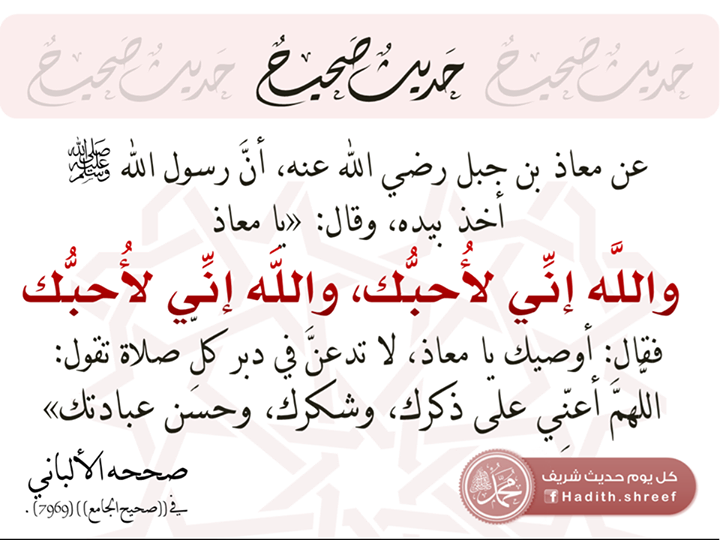 حَديثٌ صَحيحٌ حَديثٌ صَحيحٌ حَديثٌ صَحيحٌ
عن معاذ بن جبل رضي الله عنه، أنَّ رسول الله ﷺ
أخذ بيده، وقال: «يا معاذ
واللَّه إنِّي لأُحبُّك، واللَّه إنِّي لأُحبُّك
فقال: أوصيك يا معاذ، لا تدعنَّ في دبر كلّ صلاة تقول:
اللَّهمَّ أعنِّي على ذكرك، وشكرك، وحسن عبادتك»
صححه الألباني
في ((صحيح الجامع)) (7969) .
كل يوم حديث شريف
Hadith.shreef
محمد